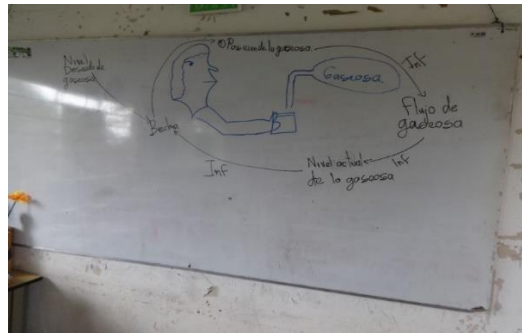 Nivel
Deseado de
gaseosa
Posicion de la gaseosa
Gaseosa
Inf
Flujo de
gaseosa
Inf
Nivel actual
de la gaseosa
Inf